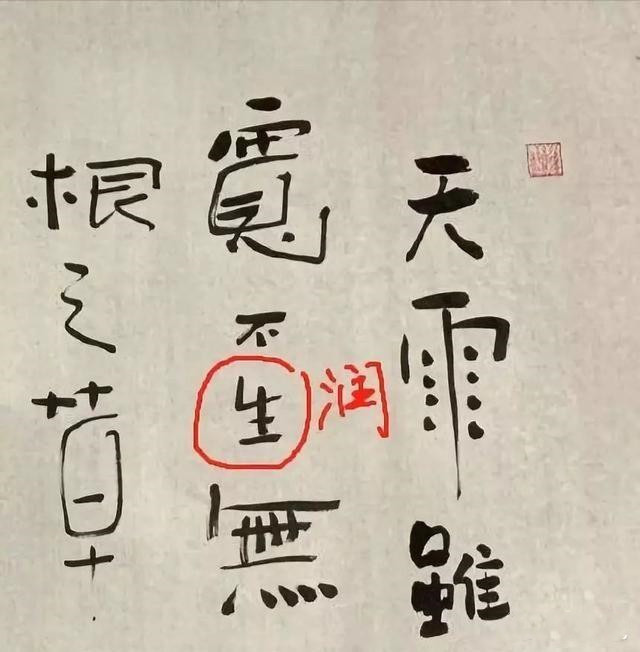 天雨雖
寬不生無
根之草
润